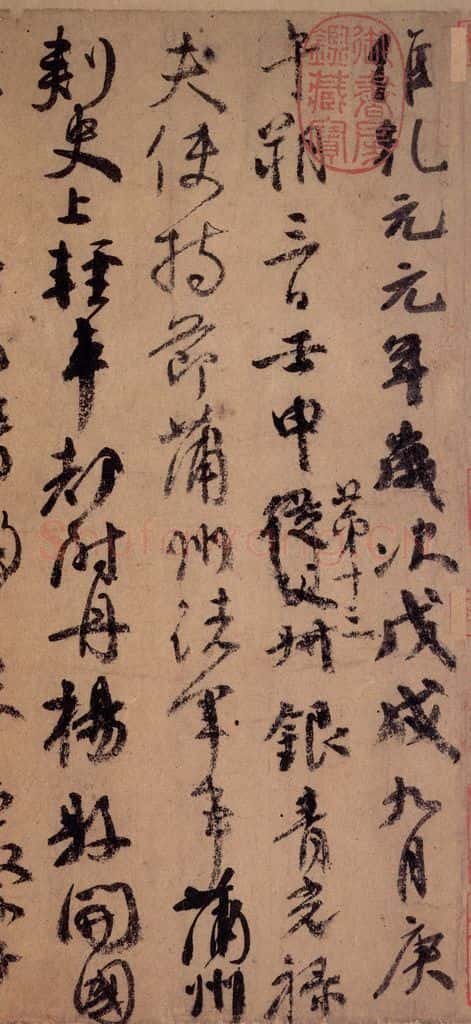 維乾元元年歲次戊戌九月庚
午朔三日壬申
第十三
從父叔銀青光祿
夫使持節蒲州諸軍事蒲州
刺史上輕車都尉丹楊縣開國
御書房鑒藏寶